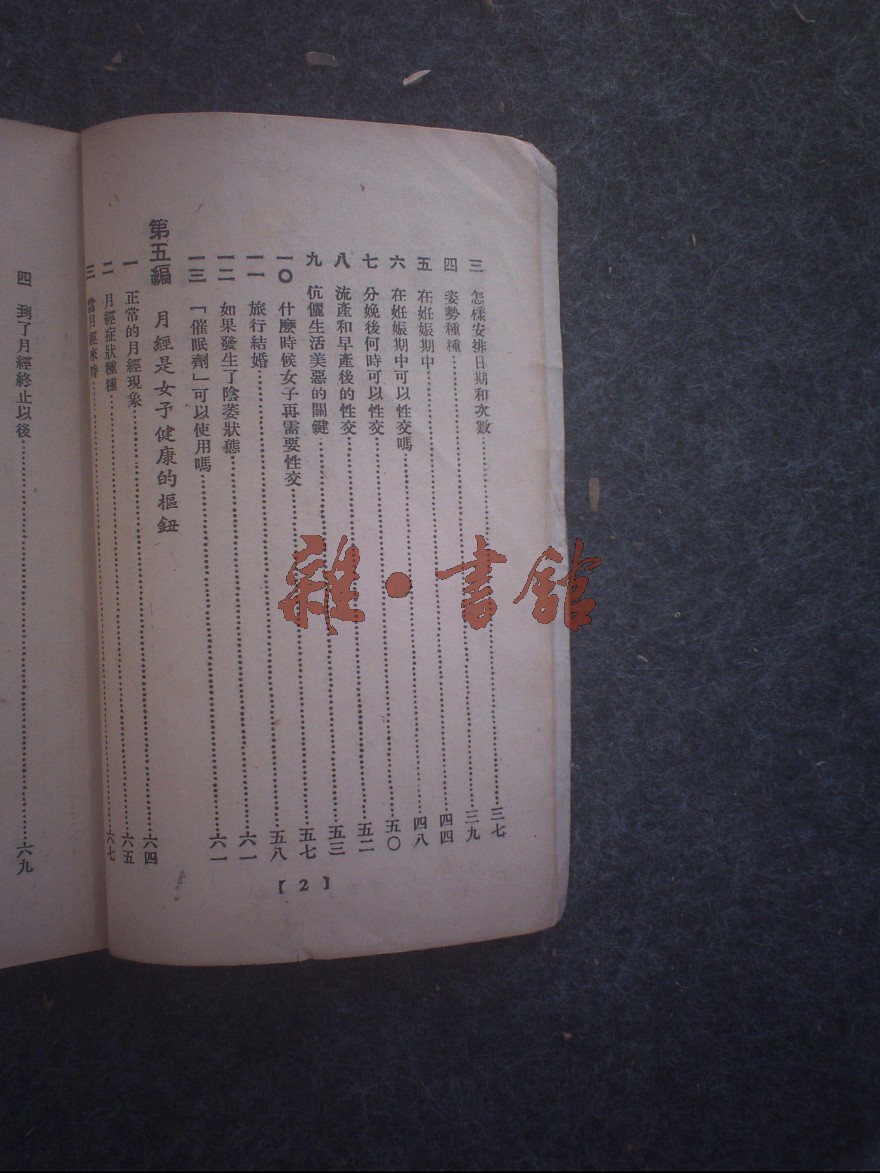 三 怎樣安排日期和次數……三七
四 姿勢種種……三九
五 在妊娠期中……四四
六 在妊娠期中可以性交嗎……四八
七 分娩後何時可以性交……五〇
八 流產和早產後的性交……五二
九 伉儷生活美惡的關鍵……五三
一〇 什麼時候女子再需要性交……五七
一一 旅行結婚……五八
一二 如果發生了陰萎狀態……六一
一三 「催眠劑」可以使用嗎……六一
第五編 月經是女子健康的樞鈕
一 正常的月經現象……六四
二 月經症狀種種……六五
三 當月經來時……六七
【2】
四 到了月經終止以後……六九
雜·書館